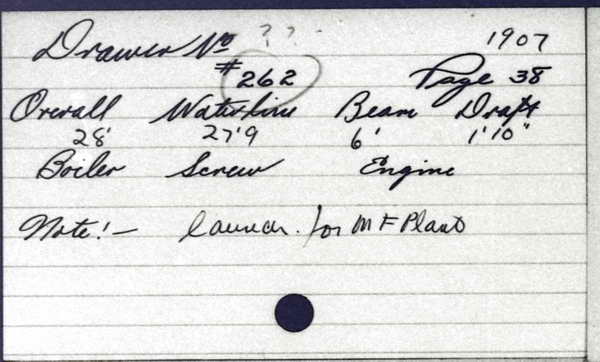 Drawer No ? ? 1907
#262 Page 38
Overall Waterline Beam Draft
28' 27'9 6' 1'10"
Boiler Screw Engine
Note!- launch. for M F Plant